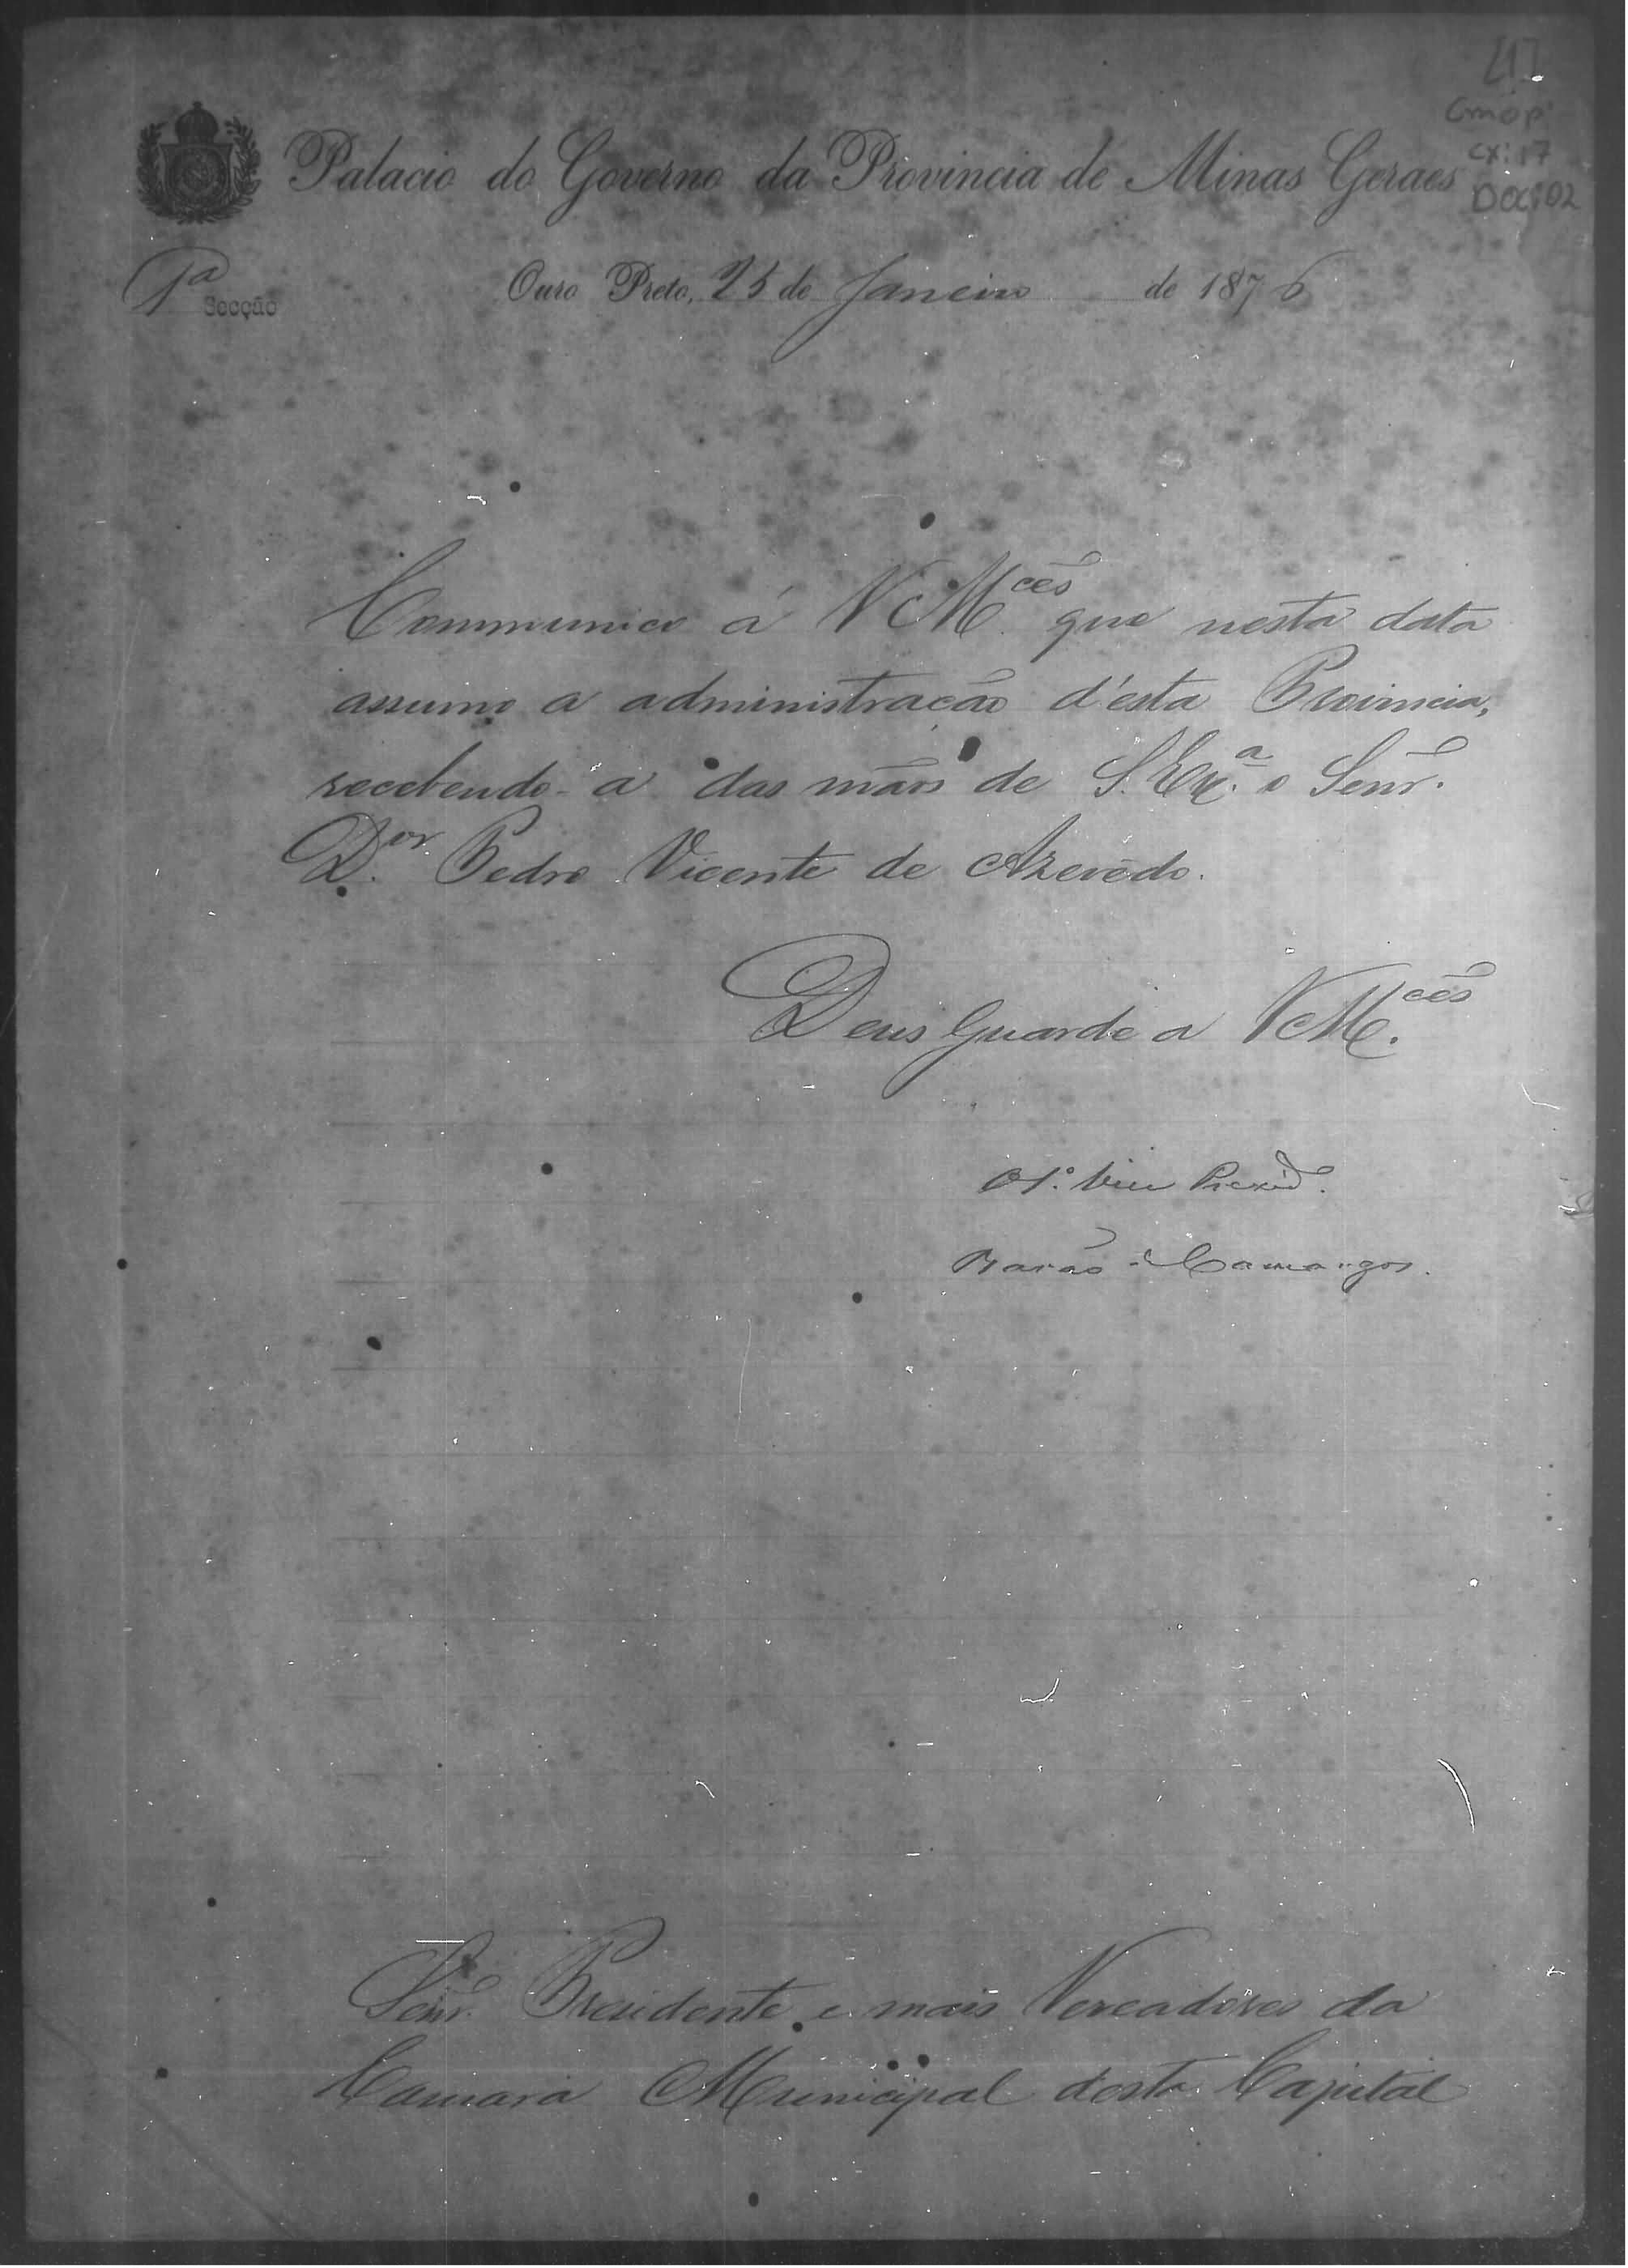 [1]
CMOP
CX: 17
DOC: 02
Palacio do Governo da Provincia de Minas Geraes
1ª Secção
Ouro Preto, 25 de Janeiro de 1876
Communico á VM.cês que nesta data
assumo a administração d'esta Provincia,
recebendo-a das mãos de S. Exª. o Senr.
D.or Pedro Vicente de Azevedo.
Deus Guarde a VM.cês
O 1º. Vice Presid.
Barão de Camargos.
Senr. Presidente e mais Vereadores da
Camara Municipal desta Capital